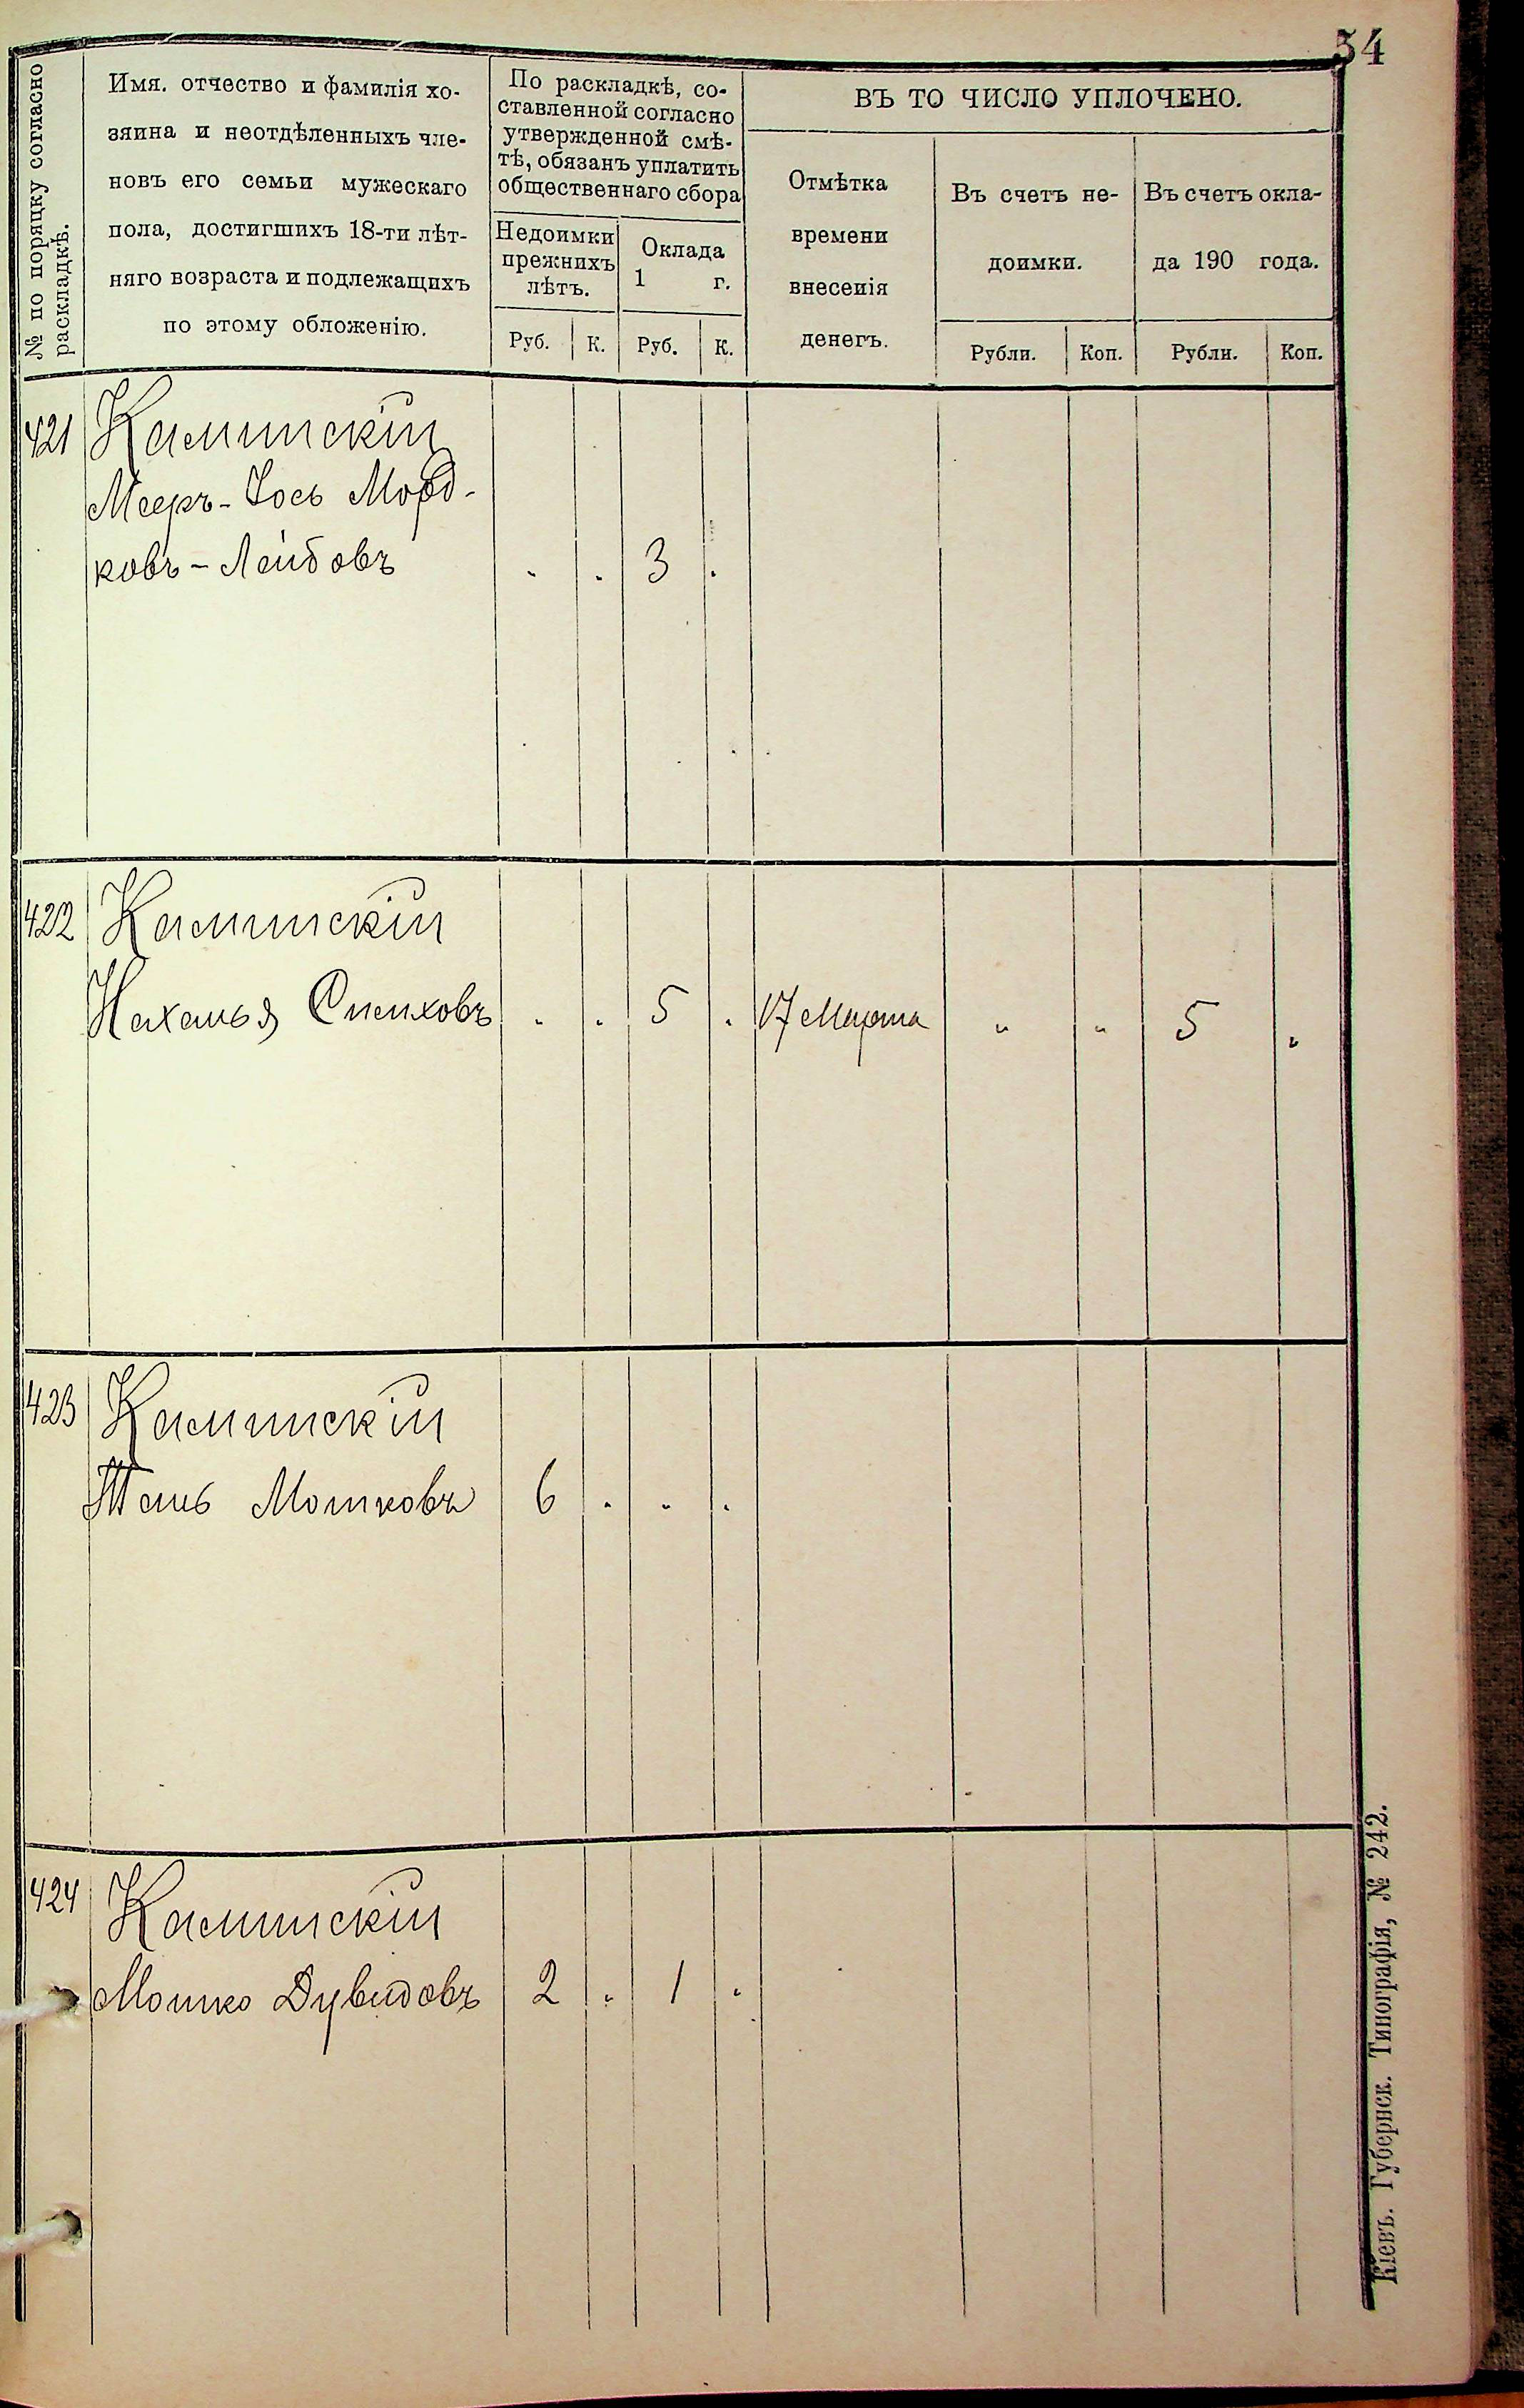 54
№ по порядку согласно
раскладкѣ.
Имя. отчество и фамилія хо-
зяина и неотдѣленныхъ чле-
новъ его семьи мужескаго
пола, достигшихъ 18-ти лѣт-
няго возраста и подлежащихъ
по этому обложенію.
По раскладкѣ, со-
ставленной согласно
утвержденной смѣ-
тѣ, обязанъ уплатить
общественнаго сбора
Недоимки
прежнихъ
лѣтъ.
Оклада
1 г.
Руб. К. Руб. К.
ВЪ ТО ЧИСЛО УПЛОЧЕНО.
Отмѣтка
времени
внесенія
денегъ.
Въ счетъ не-
доимки.
Въ счетъ окла-
да 190 года.
Рубли. Коп. Рубли. Коп.
421 Каминскій
Мееръ-Іось Морд-
ковъ-Лейбовъ . . 3 .
422 Каминскій
Нехамья . . 5 . 17 Марта " " 5 "
423 Каминскій
Мошковъ 6 . . .
424 Каминскій
Мошко Дувидовъ 2 . 1 .
Кіевъ. Губернск. Типографія, № 242.